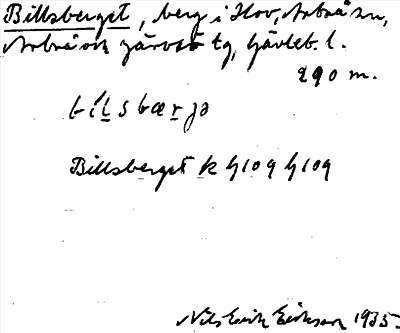 Billsberget, berg i Hov, Arbrå sn,
Arbrå och Järvsö tg, Gävleb. l.
290 m.
bilsbærjə
Billsberget k G109 G109
Nils Erik Eriksson 1935.